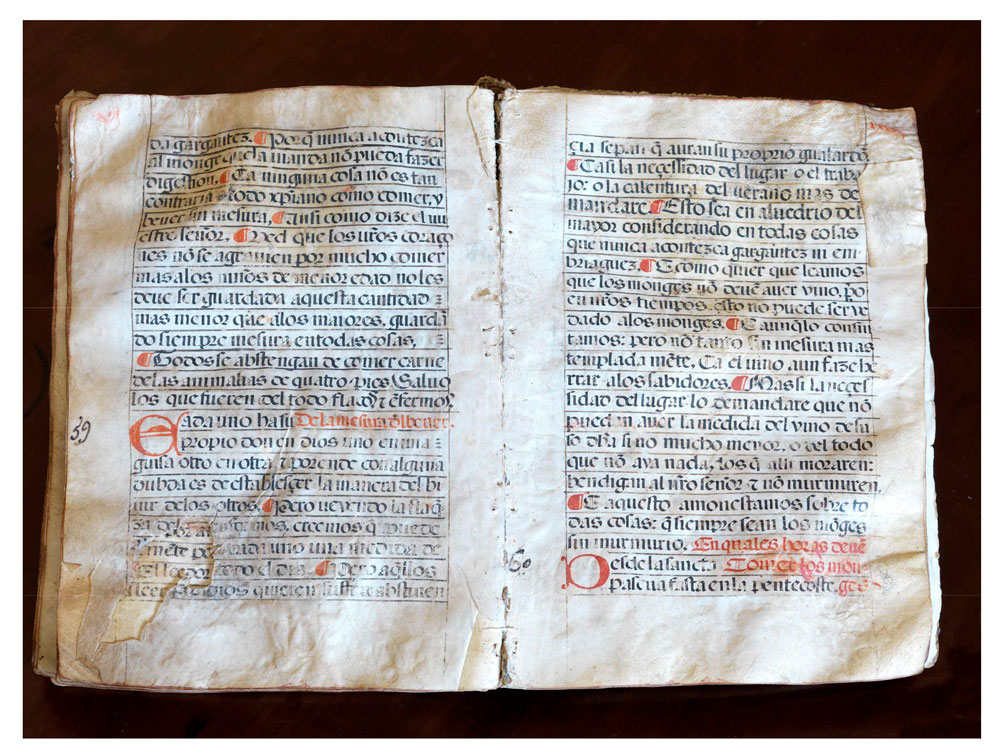 da gargantez. ¶ Por q̃ nunca acontezca
al monge que la vianda nõ pueda fazer
digestion. ¶ Ca ninguna cosa nõ es tan
contraria a todo xp̃iano como comer, y
bever sin mesura, ¶ Ansi como dize el nu
estro señor. ¶ Veed que los vr̃os coraço
nes nõ se agravien por mucho comer
mas a los niños de menor edad no les
deve ser guardada aquesta cantidad
mas menor que a los maiores, guardã
do siempre mesura en todas cosas,
¶ Todos se abstengan de comer carne
de las animalias de quatro pies Salvo
los que fueren del todo flacos ⁊ ẽfermos,
Cada uno ha su De la mesura dl bever.
propio don en Dios uno en una
guisa otro en otra, ⁊ por ende con alguna
dubda es de establescer la manera del bi
vir de los otros. ¶ Pero veyendo la flaq̃
za de los enfermos, creemos q̃ puede
cada uno una medida de
todo el dia. ¶ Pero aq̃llos
Dios quieren abstinen
59
cia sepan q̃ auran su proprio gualardõ,
¶ E asi la necessidad del lugar o el traba
jo: o la calentura del verano mas de
mandare. ¶ Esto sea en aluedrio del
mayor considerando en todas cosas
que nunca acontezca gargantez ni em
briaguez. ¶ E como quier que leamos
que los monges nõ devẽ aver vino, p̃o
en nr̃os tiempos, esto no puede ser ve
dado a los monges. ¶ E aunq̃ lo consin
tamos: pero nõ tanto sin mesura mas
templada mẽte, Ca el vino aun faze he
rrar a los sabidores. ¶ Mas si la neces
sidad del lugar lo demandare que nõ
puedan aver la medida del vino de su
so dh̃a si no mucho menor, o del todo
que nõ aya nada, los q̃ alli moraren:
bendigan al nr̃o señor ⁊ nõ murmuren,
¶ E aquesto amonestamos sobre to
das cosas: q̃ siempre sean los mõges
sin murmurio. En quales horas devẽ
Desde la sancta Comer los mon
Pascua fasta en la pentecoste. ges
60